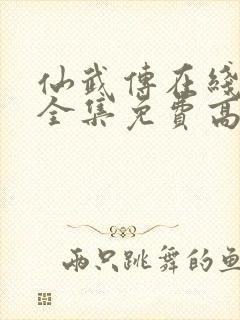 仙武傳在綫
全集免費高
兩只跳舞的魚